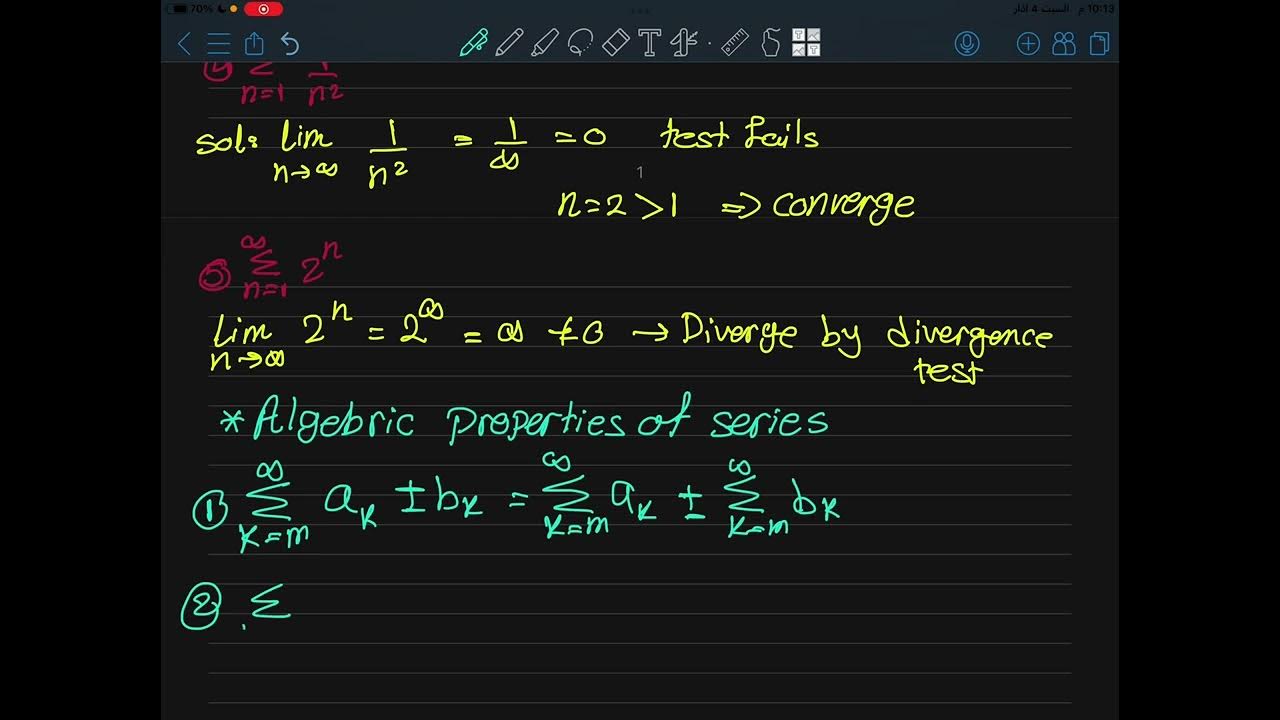 70% السبت 4 آذار 10:13 م
④ Σ n=1 1/n²
sol: lim n→∞ 1/n² = 1/∞ = 0 test fails
1
n=2>1 ⇒ converge
⑤ ∞ Σ n=1 2ⁿ
lim n→∞ 2ⁿ = 2^∞ = ∞ ≠ 0 → Diverge by divergence
test
* Algebric properties of series
① ∞ Σ k=m aₖ ± bₖ = ∞ Σ k=m aₖ ± ∞ Σ k=m bₖ
② Σ